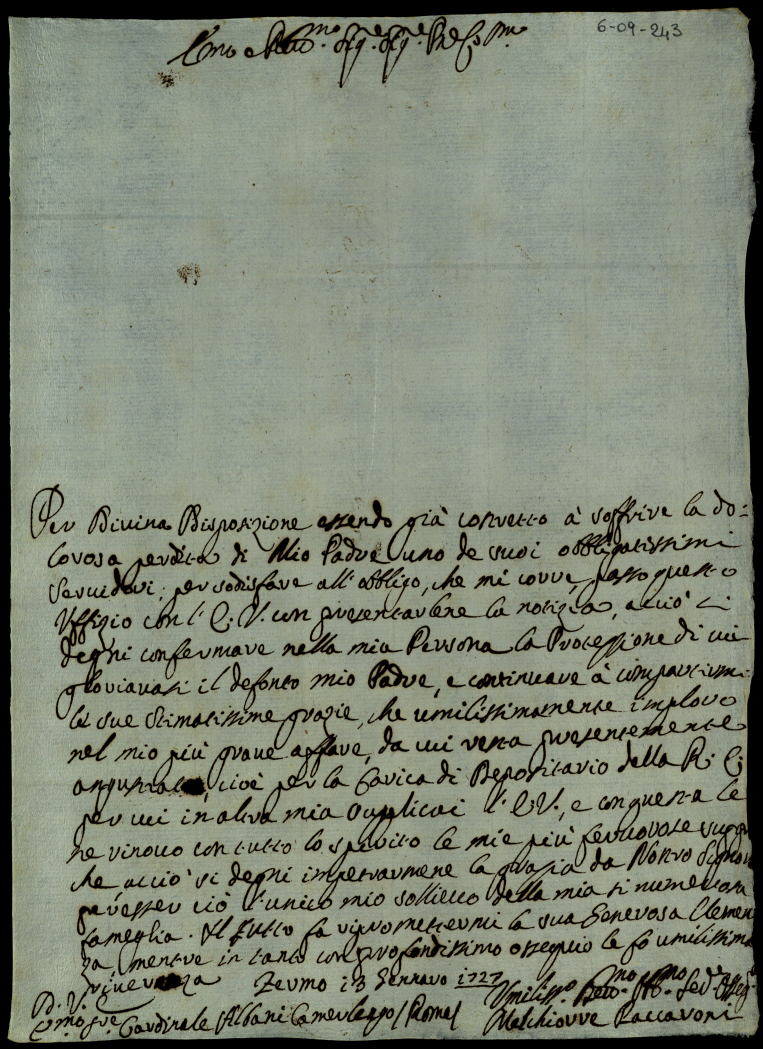 6-09-243
Emo e Rmo Sigre Sigre Pne Colmo
Per Divina Disposizione essendo già costretto à soffrire la do-
lorosa perdita di Mio Padre uno de suoi obbligatissimi
Servidori; per sodisfare all'obbligo, che mi corre, passo questo
Uffizio con l'E. V. con presentarlene la notizia, acciò si
degni confermare nella mia Persona la Protezzione di cui
gloriavasi il defonto mio Padre, e continuare à compartirmi
le sue stimatissime grazie, che umilissimamente imploro
nel mio più grave affare, da cui resta presentemente
angustiato, cioè per la Carica di Depositario della R. C.
per cui in altra mia supplicai l'E. V., e con questa le
ne rinovo con tutto lo spirito le mie più fervorose suppli
che acciò si degni impetrarmene la grazia da Nostro Signore
per esser ciò l'unico mio sollievo della mia sì numerosa
fameglia. Il tutto fa ripromettermi la sua Generosa Clemen
za, mentre in tanto con profondissimo ossequio le fò umilissima
riverenza
Fermo 13 Gennaro 1727
D. V. E.
Umilisso Devmo Obbmo Serve Osseq
Sigre Cardinale Albani Camerlengo / Roma /
Melchiorre Paccaroni